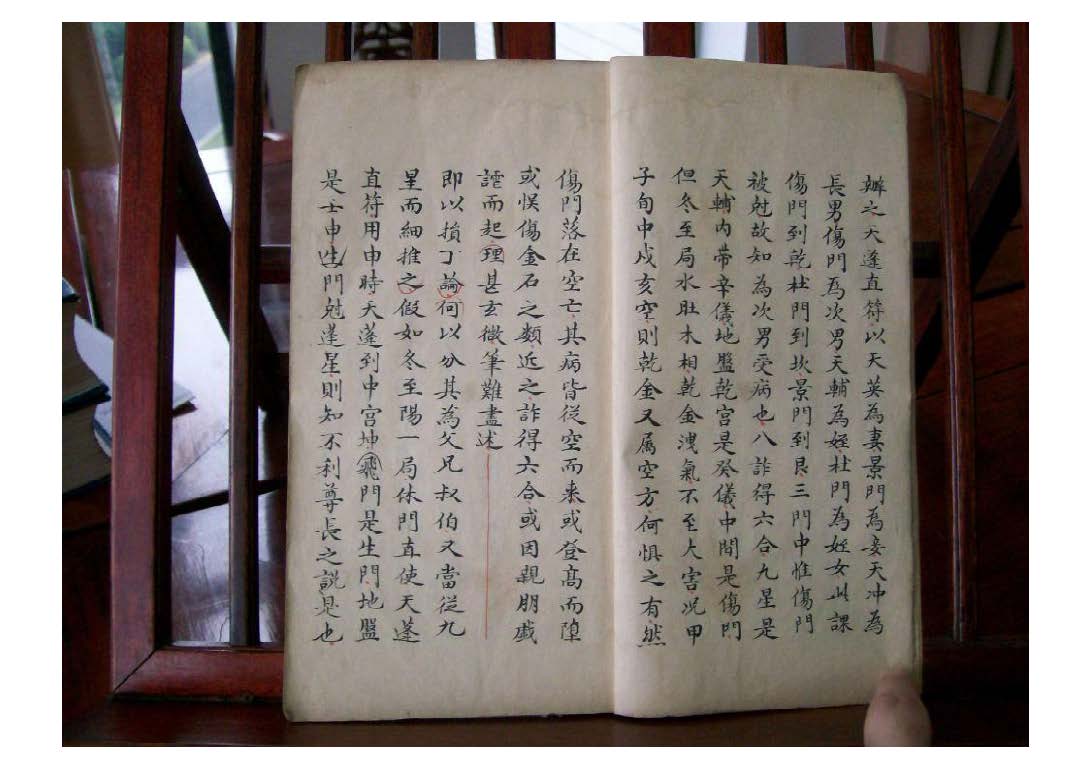 辦之天蓬直符以天英為妻景門為妾天冲為
長男傷門為次男天輔為姪杜門為姪女此課
傷門到乾杜門到坎景門到艮三門中惟傷門
被尅故知為次男受病也八詐得六合九星是
天輔內带辛儀地盤乾宫是癸儀中間是傷門
但冬至局水旺木相乾金洩氣不至大害况甲
子旬中戍亥空則乾金又属空方何惧之有然
傷門落在空亡其病皆従空而来或登髙而隕
或悮傷金石之類近之詐得六合或因親朋戯
謔而起理甚玄微筆難盡述
即以損丁論何以分其為父兄叔伯又當従九
星而細推之假如冬至陽一局休門直使天蓬
直符用申時天蓬到中宫坤飛門是生門地盤
是壬申生門尅蓬星則知不利尊長之説是也